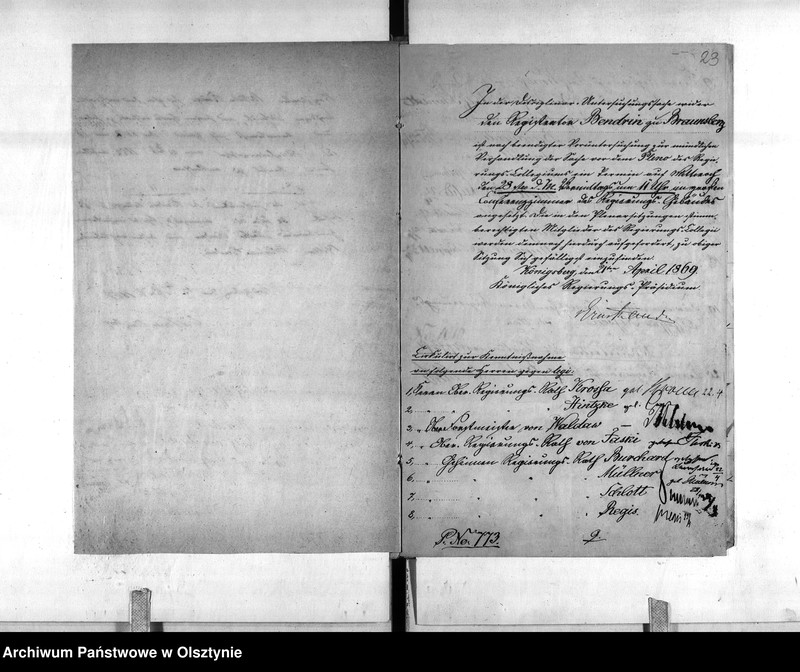 23
In der Disciplinar-Untersuchungssache wider
den Registrator Bendrin zu Braunsberg
ist nach beendigter Voruntersuchung zur mündlichen
Verhandlung der Sache vor dem Pleno des Regie-
rungs-Collegiums ein Termin auf Mittwoch
den 28sten d. Mts. Vormittags um 11 Uhr im großen
Conferenzzimmer des Regierungs-Gebäudes
angesetzt. Die in den Plenarsitzungen stimm-
berechtigten Mitglieder des Regierungs-Collegii
werden demnach hierdurch aufgefordert, zu obiger
Sitzung sich gefälligst einzufinden
Königsberg, den 21ten April 1869.
Königliches Regierungs-Präsidium
Cirkulirt zur Kenntnißnahme
an folgende Herren gegen legi:
1. Herrn Ober-Regierungs-Rath Krossa gel. 22.4
2. " " " Hintzke gel.
3. " Oberforstmeister von Waldaw
4. " Ober-Regierungs-Rath von
5. " Geheimen Regierungs-Rath Burchard
6. " " " Müllner
7. " " " Schlott
8. " " " Regis.
P. No. 773.
Archiwum Państwowe w Olsztynie